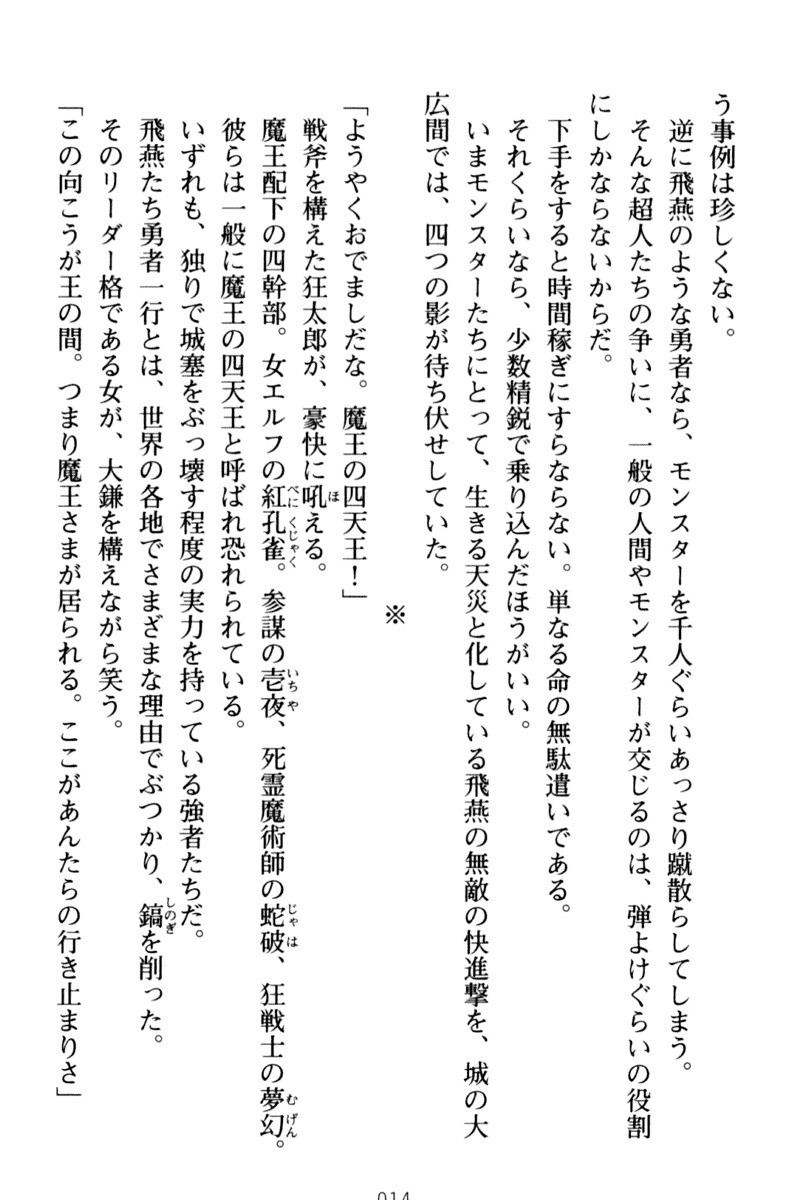 う事例は珍しくない。
逆に飛燕のような勇者なら、モンスターを千人ぐらいあっさり蹴散らしてしまう。
そんな超人たちの争いに、一般の人間やモンスターが交じるのは、弾よけぐらいの役割
にしかならないからだ。
下手をすると時間稼ぎにすらならない。単なる命の無駄遣いである。
それくらいなら、少数精鋭で乗り込んだほうがいい。
いまモンスターたちにとって、生きる天災と化している飛燕の無敵の快進撃を、城の大
広間では、四つの影が待ち伏せしていた。
※
「ようやくおでましだな。魔王の四天王！」
戦斧を構えた狂太郎が、豪快に吼える。
魔王配下の四幹部。女エルフの紅孔雀。参謀の壱夜、死霊魔術師の蛇破、狂戦士の夢幻。
彼らは一般に魔王の四天王と呼ばれ恐れられている。
いずれも、独りで城塞をぶっ壊す程度の実力を持っている強者たちだ。
飛燕たち勇者一行とは、世界の各地でさまざまな理由でぶつかり、鎬を削った。
そのリーダー格である女が、大鎌を構えながら笑う。
「この向こうが王の間。つまり魔王さまが居られる。ここがあんたらの行き止まりさ」
014